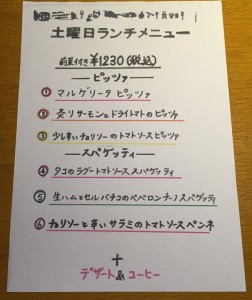 土曜日ランチメニュー
前菜付き ¥1230 (税込)
ピッツァ
① マルゲリータ ピッツァ
② 炙りサーモンとドライトマトのピッツァ
③ 少し辛いチョリソーのトマトソースピッツァ
スパゲッティ
④ タコのラグートマトソーススパゲッティ
⑤ 生ハムとセルバチコのペペロンチーノスパゲッティ
⑥ チョリソーと辛いサラミのトマトソースペンネ
+
デザート&コーヒー